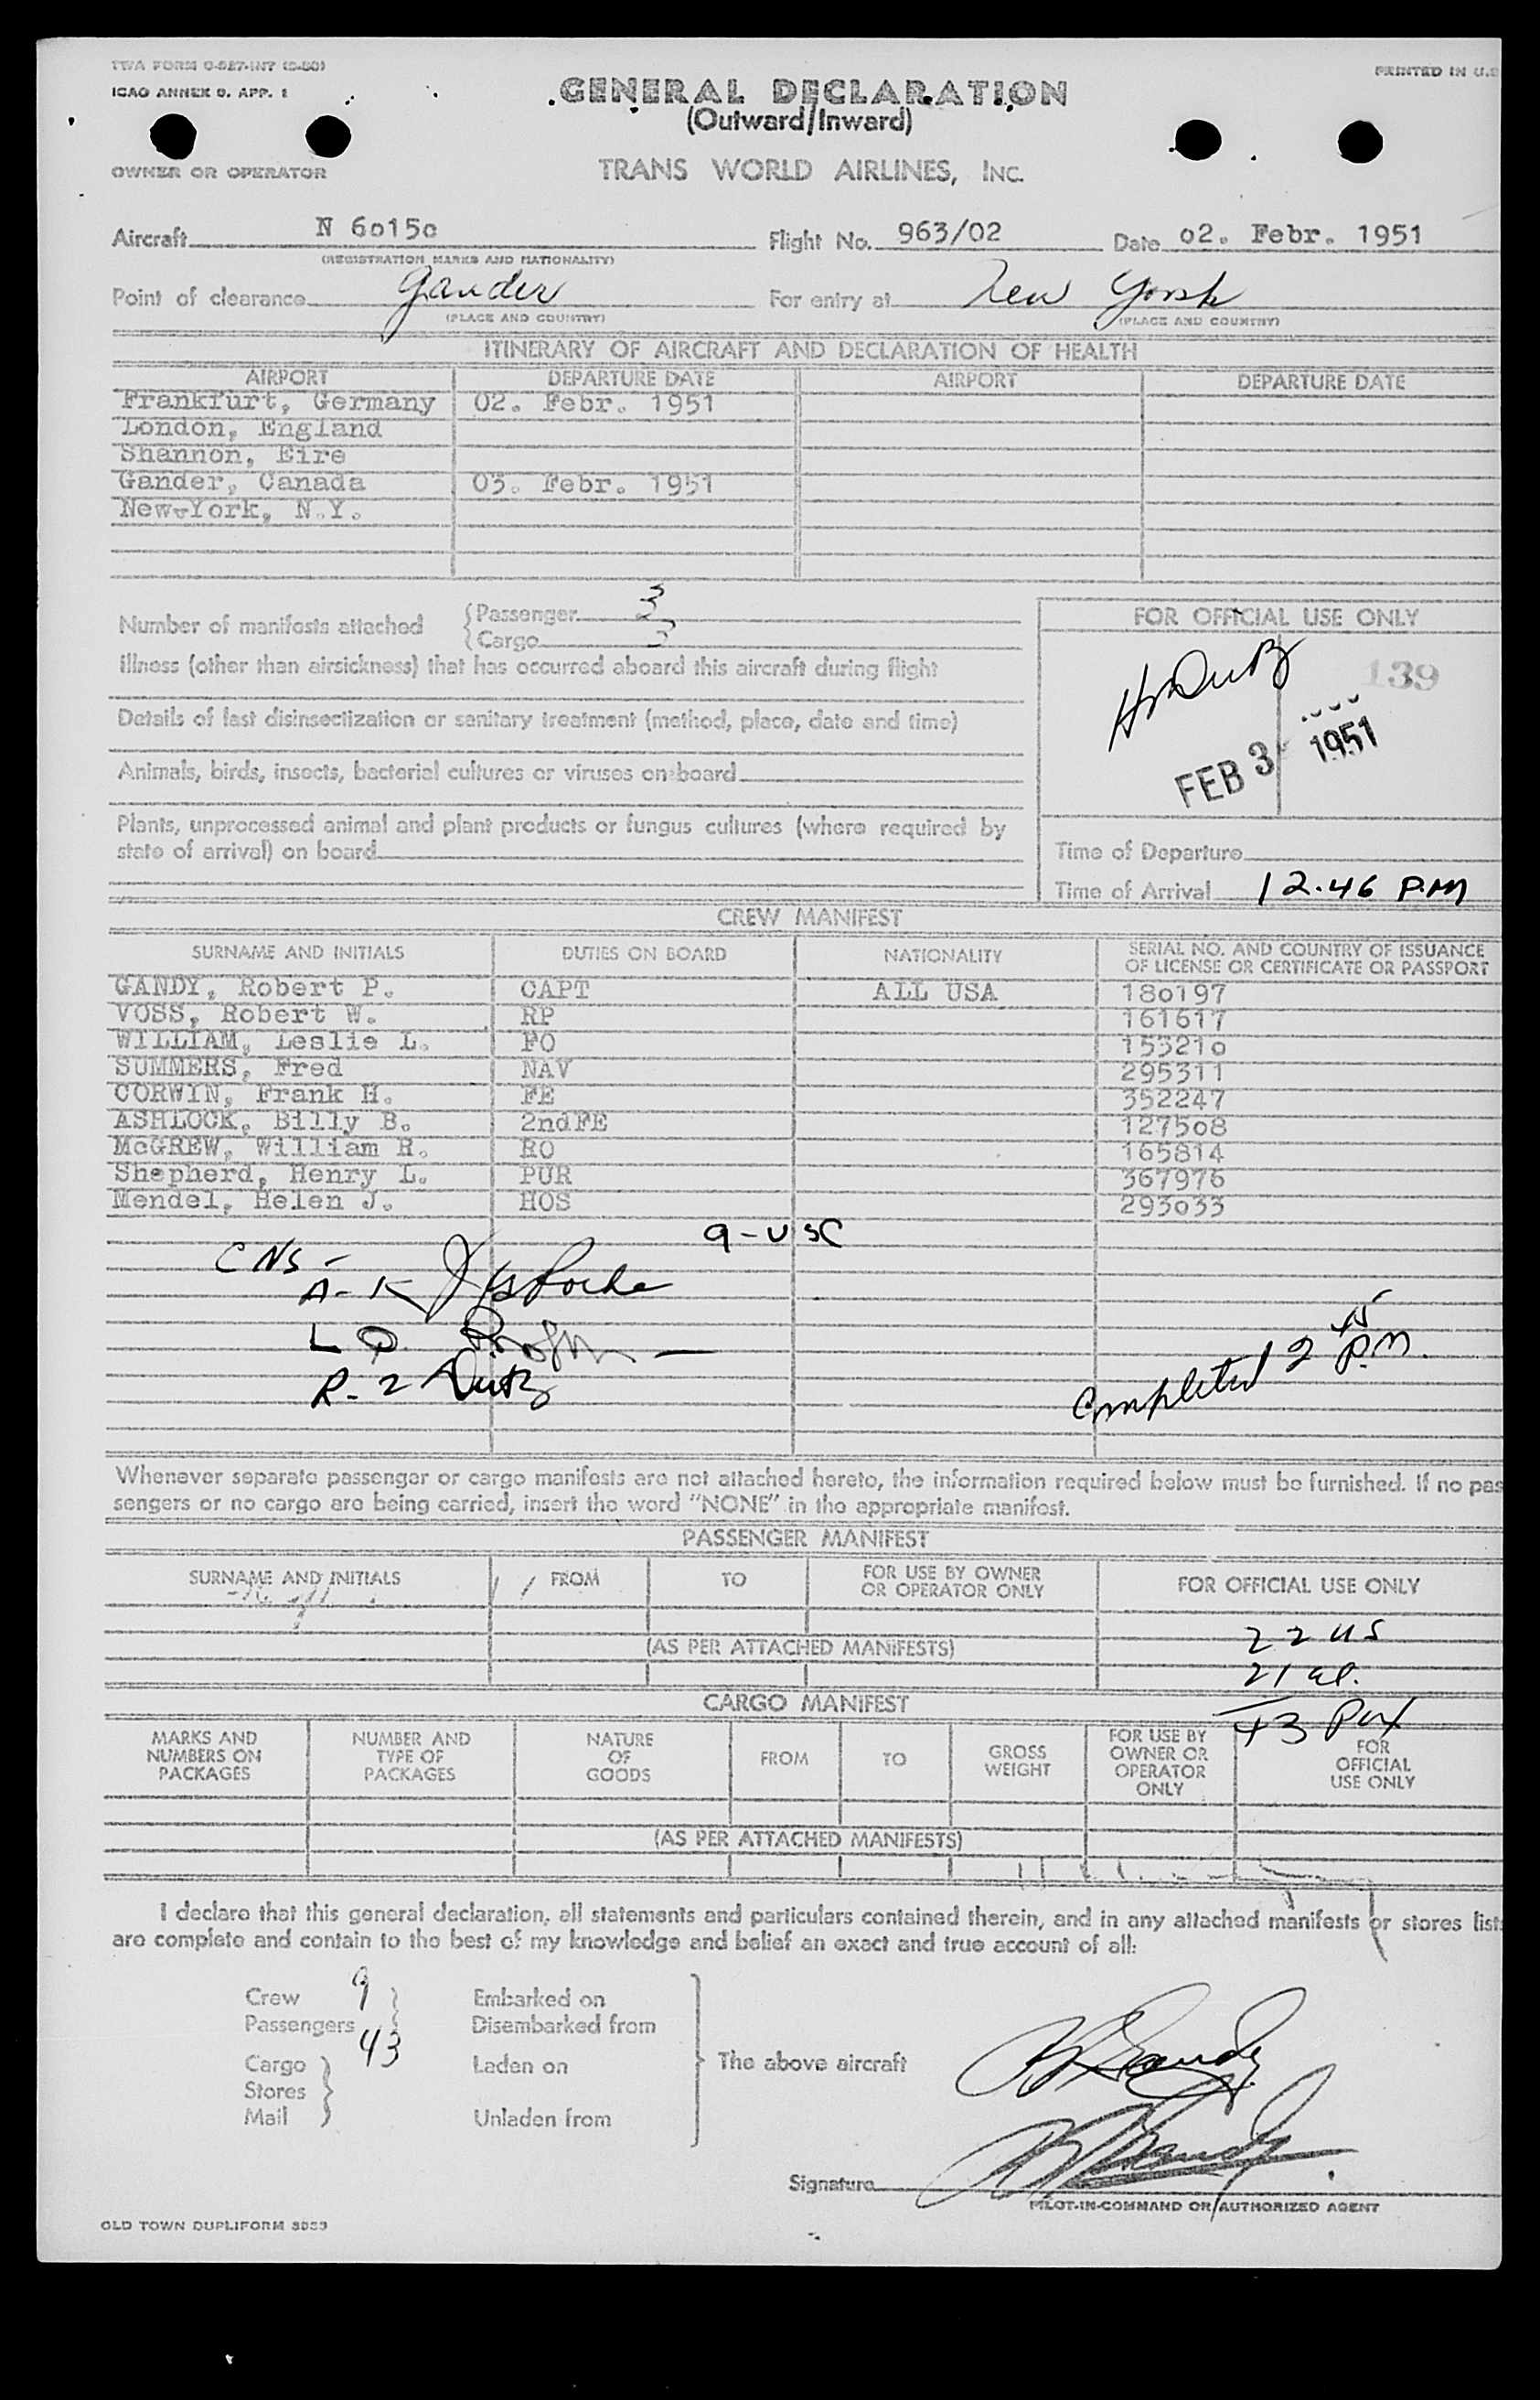 TWA FORM O-527-INT (2-50)
PRINTED IN U.S
ICAO ANNEX 9, APP. 1
GENERAL DECLARATION
(Outward/Inward)
OWNER OR OPERATOR
TRANS WORLD AIRLINES, INC.
Aircraft N 6o15c Flight No. 963/02 Date o2. Febr. 1951
(REGISTRATION MARKS AND NATIONALITY)
Point of clearance Gander For entry at New York
(PLACE AND COUNTRY) (PLACE AND COUNTRY)
ITINERARY OF AIRCRAFT AND DECLARATION OF HEALTH
AIRPORT DEPARTURE DATE AIRPORT DEPARTURE DATE
Frankfurt, Germany 02. Febr. 1951
London, England
Shannon, Eire
Gander, Canada 03. Febr. 1951
New-York, N.Y.
Number of manifests attached
Passenger 3
Cargo 3
Illness (other than airsickness) that has occurred aboard this aircraft during flight
Details of last disinsectization or sanitary treatment (method, place, date and time)
Animals, birds, insects, bacterial cultures or viruses on board
Plants, unprocessed animal and plant products or fungus cultures (where required by
state of arrival) on board
FOR OFFICIAL USE ONLY
139
FEB 3 1951
Time of Departure
Time of Arrival 12.46 P.M
CREW MANIFEST
SURNAME AND INITIALS DUTIES ON BOARD NATIONALITY SERIAL NO. AND COUNTRY OF ISSUANCE OF LICENSE OR CERTIFICATE OR PASSPORT
GANDY, Robert P. CAPT ALL USA 18o197
VOSS, Robert W. RP 161617
WILLIAM, Leslie L. FO 15521o
SUMMERS, Fred NAV 295311
CORWIN, Frank H. FE 352247
ASHLOCK, Billy B. 2ndFE 1275o8
McGREW, William R. RO 165814
Shepherd, Henry L. PUR 367976
Mendel, Helen J. HOS 293o33
9-USC
CNS -
A-K
L Q
R-Z
Completed 2 45 P.M.
Whenever separate passenger or cargo manifests are not attached hereto, the information required below must be furnished. If no pas
sengers or no cargo are being carried, insert the word "NONE" in the appropriate manifest.
PASSENGER MANIFEST
SURNAME AND INITIALS FROM TO FOR USE BY OWNER OR OPERATOR ONLY FOR OFFICIAL USE ONLY
22 US
(AS PER ATTACHED MANIFESTS)
21 al.
43 Pax
CARGO MANIFEST
MARKS AND NUMBERS ON PACKAGES NUMBER AND TYPE OF PACKAGES NATURE OF GOODS FROM TO GROSS WEIGHT FOR USE BY OWNER OR OPERATOR ONLY FOR OFFICIAL USE ONLY
(AS PER ATTACHED MANIFESTS)
I declare that this general declaration, all statements and particulars contained therein, and in any attached manifests or stores lists
are complete and contain to the best of my knowledge and belief an exact and true account of all:
Crew 9 Embarked on
Passengers 43 Disembarked from
Cargo Laden on The above aircraft
Stores
Mail Unladen from
Signature
PILOT-IN-COMMAND OR AUTHORIZED AGENT
OLD TOWN DUPLIFORM 8053